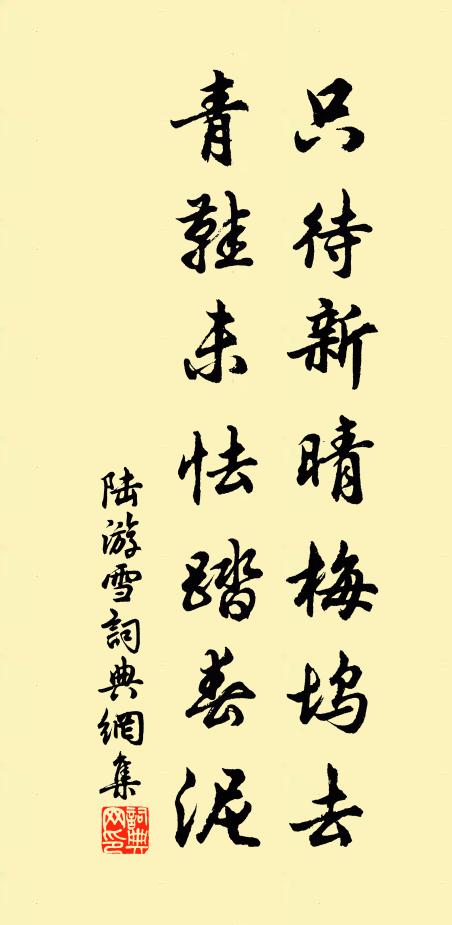 只待新晴梅坞去
青鞋未怯踏春泥
陆游雪詞典網集
詞典網印